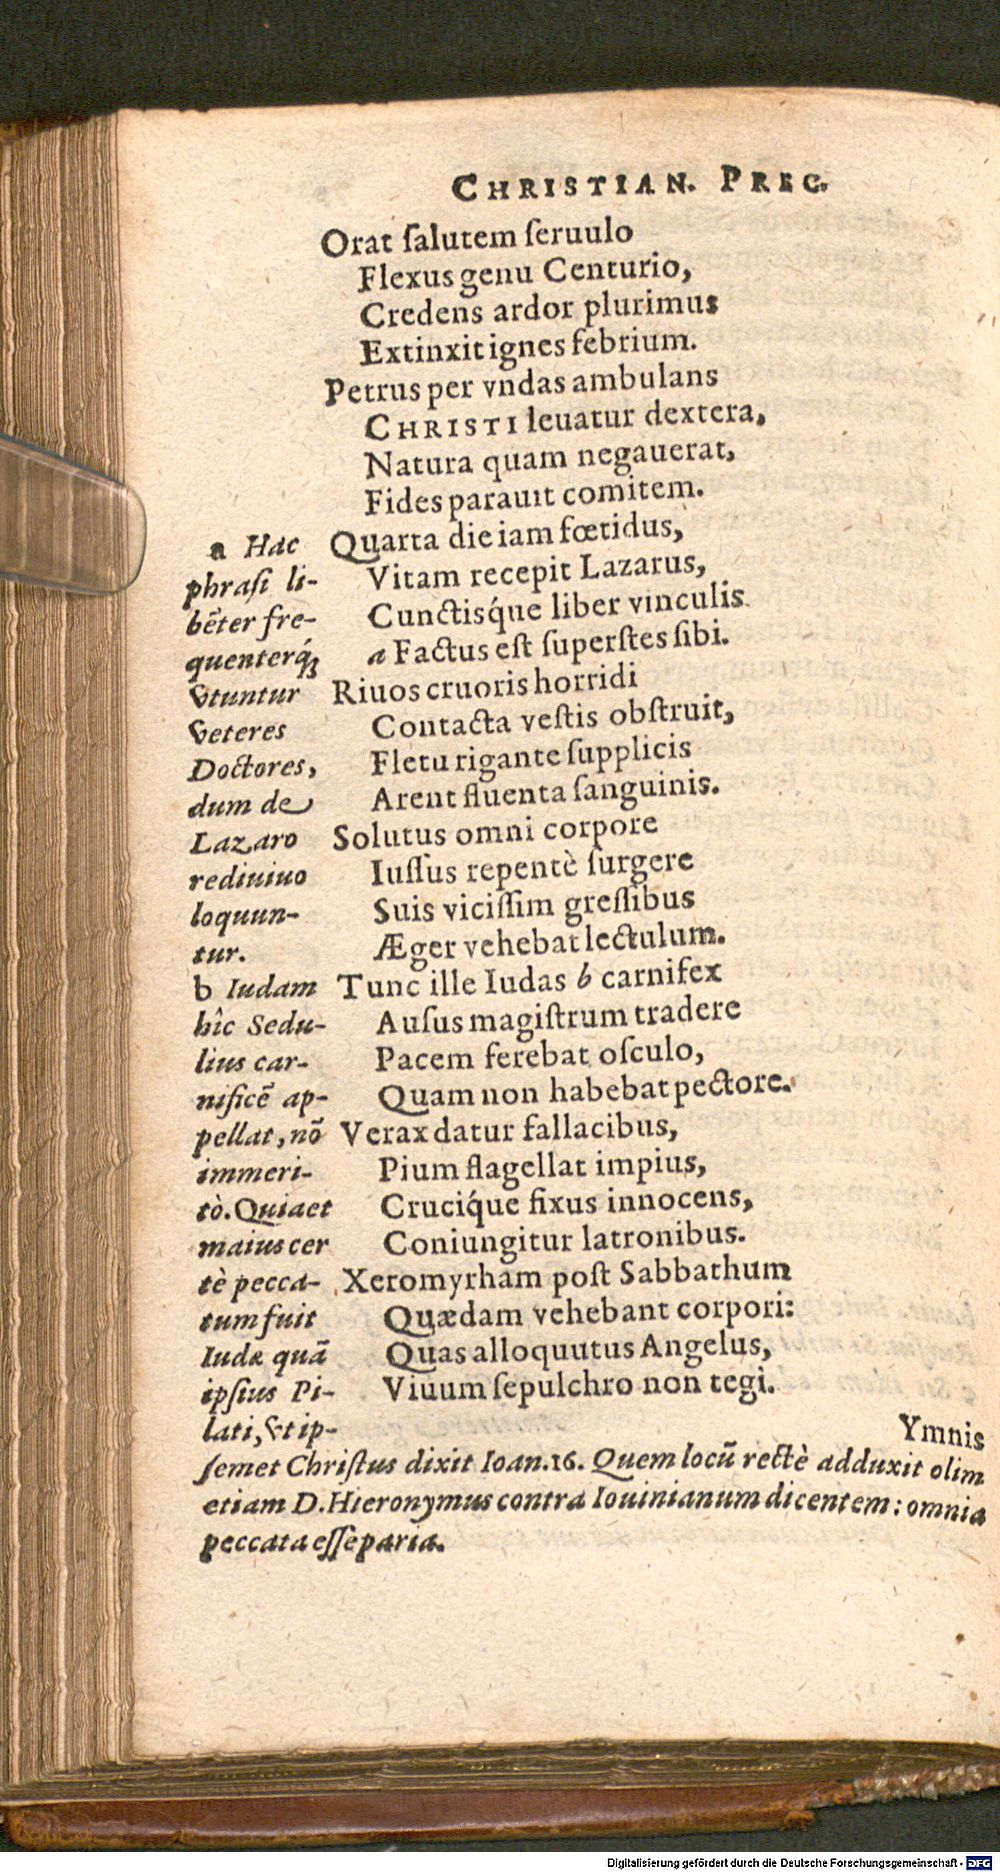 CHRISTIAN. PREC.
Orat ſalutem ſeruulo
Flexus genu Centurio,
Credens ardor plurimus
Extinxit ignes febrium.
Petrus per vndas ambulans
CHRISTI leuatur dextera,
Natura quam negauerat,
Fides parauit comitem.
Quarta die iam fœtidus,
Vitam recepit Lazarus,
Cunctisq́ue liber vinculis
a Factus eſt ſuperſtes ſibi.
Riuos cruoris horridi
Contacta veſtis obſtruit,
Fletu rigante ſupplicis
Arent fluenta ſanguinis.
Solutus omni corpore
Iuſſus repentè ſurgere
Suis viciſſim greſſibus
Æger vehebat lectulum.
Tunc ille Iudas b carnifex
Auſus magiſtrum tradere
Pacem ferebat oſculo,
Quam non habebat pectore.
Verax datur fallacibus,
Pium flagellat impius,
Cruciq́ue fixus innocens,
Coniungitur latronibus.
Xeromyrham poſt Sabbathum
Quædam vehebant corpori:
Quas alloquutus Angelus,
Viuum ſepulchro non tegi.
Ymnis
a Hac
phraſi li-
bẽter fre-
quenterq́;
vtuntur
veteres
Doctores,
dum de
Lazaro
rediuiuo
loquun-
tur.
b Iudam
hîc Sedu-
lius car-
nificẽ ap-
pellat, nõ
immeri-
tò. Quia et
maius cer
tè pecca-
tum fuit
Iudæ quã
ipſius Pi-
lati, vt ip-
ſemet Chriſtus dixit Ioan. 16. Quem locũ rectè adduxit olim
etiam D. Hieronymus contra Iouinianum dicentem: omnia
peccata eſſe paria.
Digitalisierung gefördert durch die Deutsche Forschungsgemeinschaft - DFG